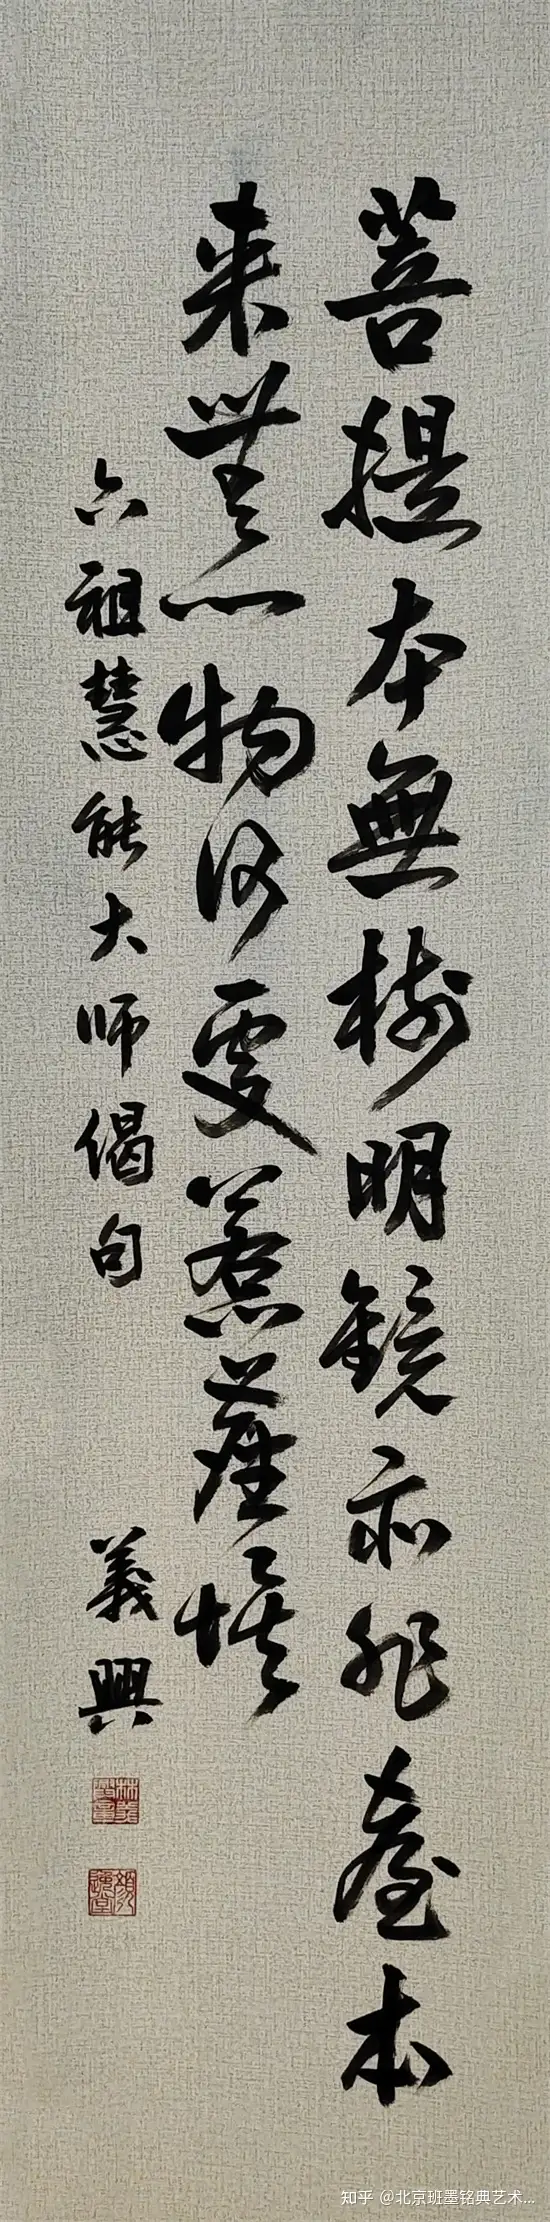 菩提本無樹明鏡亦非臺本
来無一物何處惹塵埃
六祖慧能大师偈句
義興
知乎 @北京班墨铭典艺术...